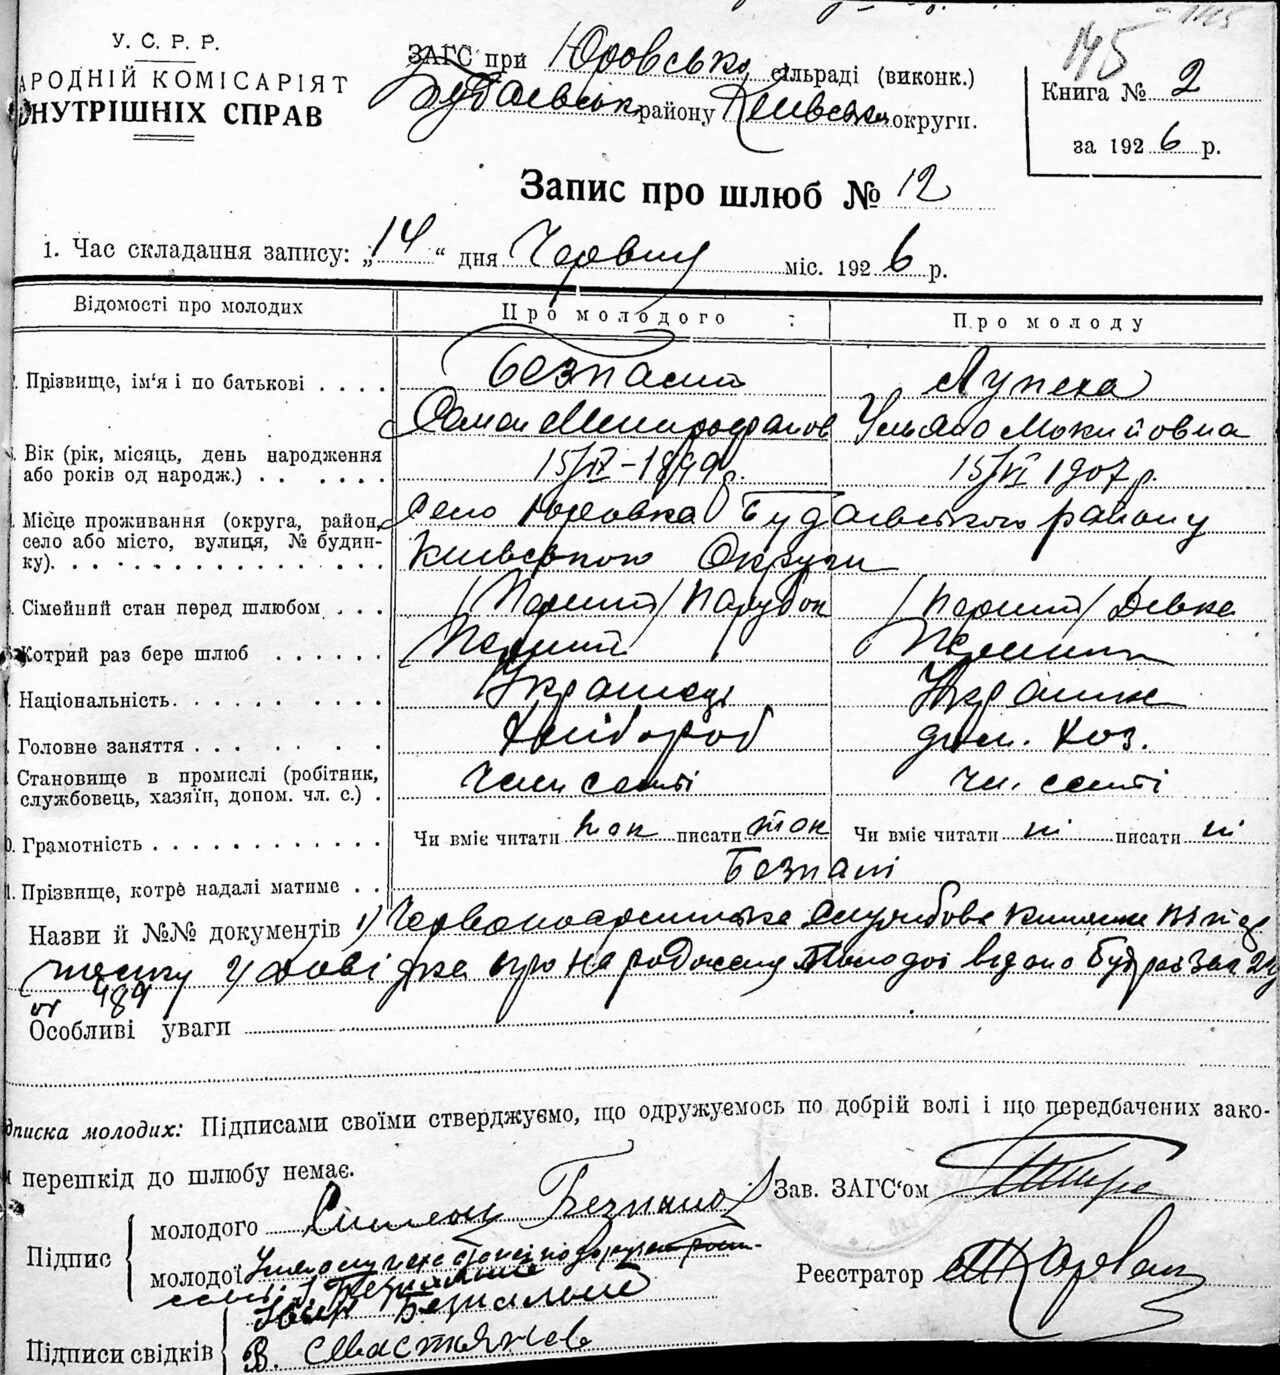 145
У. С. Р. Р.
АРОДНІЙ КОМІСАРІЯТ
ВНУТРІШНІХ СПРАВ
ЗАГС при Юровськ сільраді (виконк.)
Будаєвськ району Київськ округи.
145
Книга № 2
за 1926 р.
Запис про шлюб № 12
1. Час складання запису: „14“ дня Червня міс. 1926 р.
Відомості про молодих
Про молодого
Про молоду
Прізвище, ім'я і по батькові . . . .
Безпалий
Лупеха
Митрофанов
Ульяна Мокийовна
Вік (рік, місяць, день народження
або років од народж.) . . . . . .
15/IV-1899 р.
15/VI 1907 р.
Місце проживання (округа, район,
село або місто, вулиця, № будин-
ку).
Село Юровка Будаєвського району
Київського Округи
Сімейний стан перед шлюбом . . .
/Перший/ Парубок
/Перший/ Девка
Котрий раз бере шлюб . . . . . .
Перший
Перший
Національність.
Украинець
Украинка
Головне заняття . . . . . .
Хлібороб
дом. хоз.
Становище в промислі (робітник,
службовець, хазяїн, допом. чл. с.) .
Член семті
чл. семті
Грамотність
Чи вміє читати так писати так
Чи вміє читати ні писати ні
1. Прізвище, котре надалі матиме . .
Безпалі
Назви й №№ документів 1) Червоноармійська Службова книжка
про народження Молодої видано
484
Особливі уваги
дписка молодих: Підписами своїми стверджуємо, що одружуємось по добрій волі і що передбачених зако-
перешкід до шлюбу немає.
Зав. ЗАГС'ом
Підпис
молодого Безпалий
молодої
Реєстратор
Безпалий
Підписи свідків
В. Севастьянов